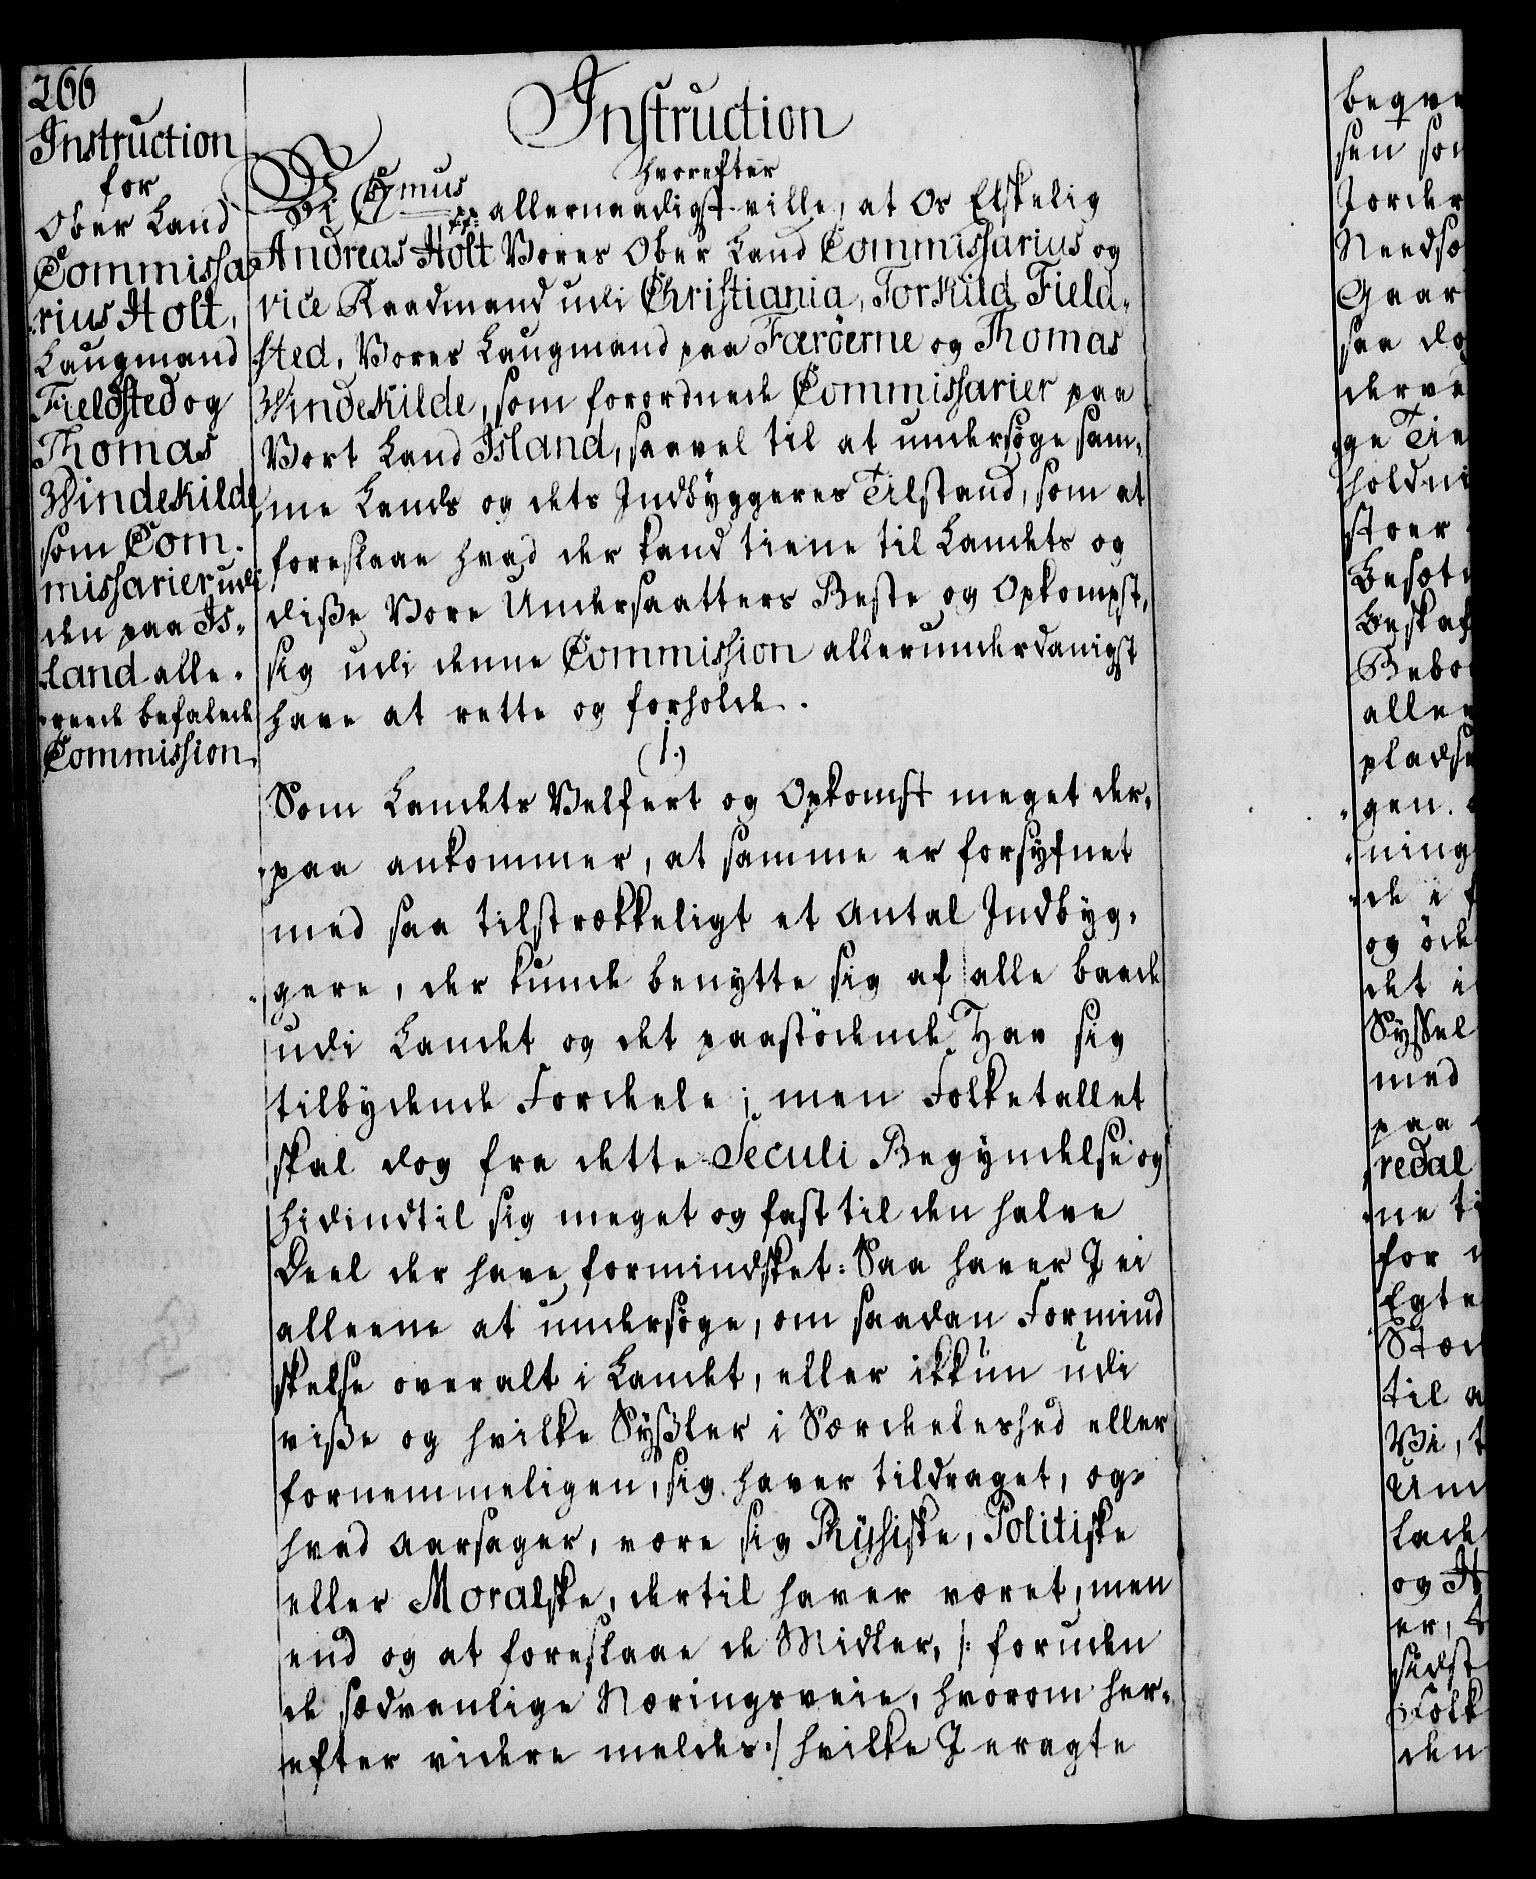 266
Instruction
for
Ober Land
Commissa
rius Holt,
Laugmand
Fieldsted og
Thomas
Windekilde
som Com-
missarier udi
den paa Is-
land alle-
reede befalede
Commission.
Instruction
hvorefter
Vi C 7mus pp: allernaadigst ville, at Os Elskelig
Andreas Holt Vores Ober Land Commissarius og
vice Raadmand udi Christiania, Torkild Field-
sted, Vores Laugmand paa Færöerne og Thomas
Windekilde, som forordnede Commissarier paa
Vort Land Island, saavel til at undersøge sam-
me Lands og dets Indbyggeres Tilstand, som at
foreslaae hvad der kand tiene til Landets og
diße Vore Undersaatters Beste og Opkompst,
sig udi denne Commission allerunderdanigst
have at rette og forholde.
(1.)
Som Landets Velfert og Opkomst meget der-
paa ankommer, at samme er forsyfnet
med saa tilstrækkeligt et Antal Indbyg-
gere, der kunde benytte sig af alle baade
udi Landet og det paastödende Hav sig
tilbydende Fordeele; men Folketallet
skal dog fra dette Seculi Begyndelse og
hidindtil sig meget og fast til den halve
Deel der have formindsket: Saa haver I ei
alleene at undersøge, om saadan Formind
skelse overalt i Landet, eller ikkun udi
viße og hvilke Sÿßler i Særdeleshed eller
fornemmeligen, sig haver tildraget, og-
hvad Aarsager, være sig Phÿsiske, Politiske
eller Moralske, dertil haver været, men
end og at foreslaae de Midler, /: foruden
de sædvanlige Næringsveie, hvorom her-
efter videre meldes :/ hvilke I eragte
beqve
sen so
Jorder
Needsæ
Gaar
saa do
derve
ge Tie
holdni
stoer
Besæt
Beskaf
Bebo
aller
pladse
gen.
ning
de i
og öde
det i
Sÿssel
med
paa
redal
ne ti
for
Egte
Stæd
til a
Vi, t
Um
lade
og H
er,
sidst
Folk
den